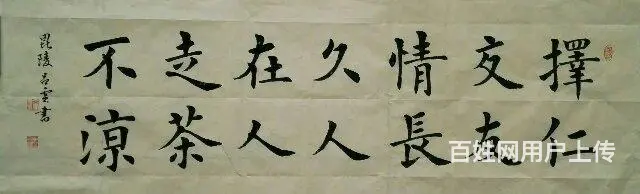 擇仁
交友
情長
久人
在人
走茶
不涼
毘陵呂雲書
百姓网用户上传